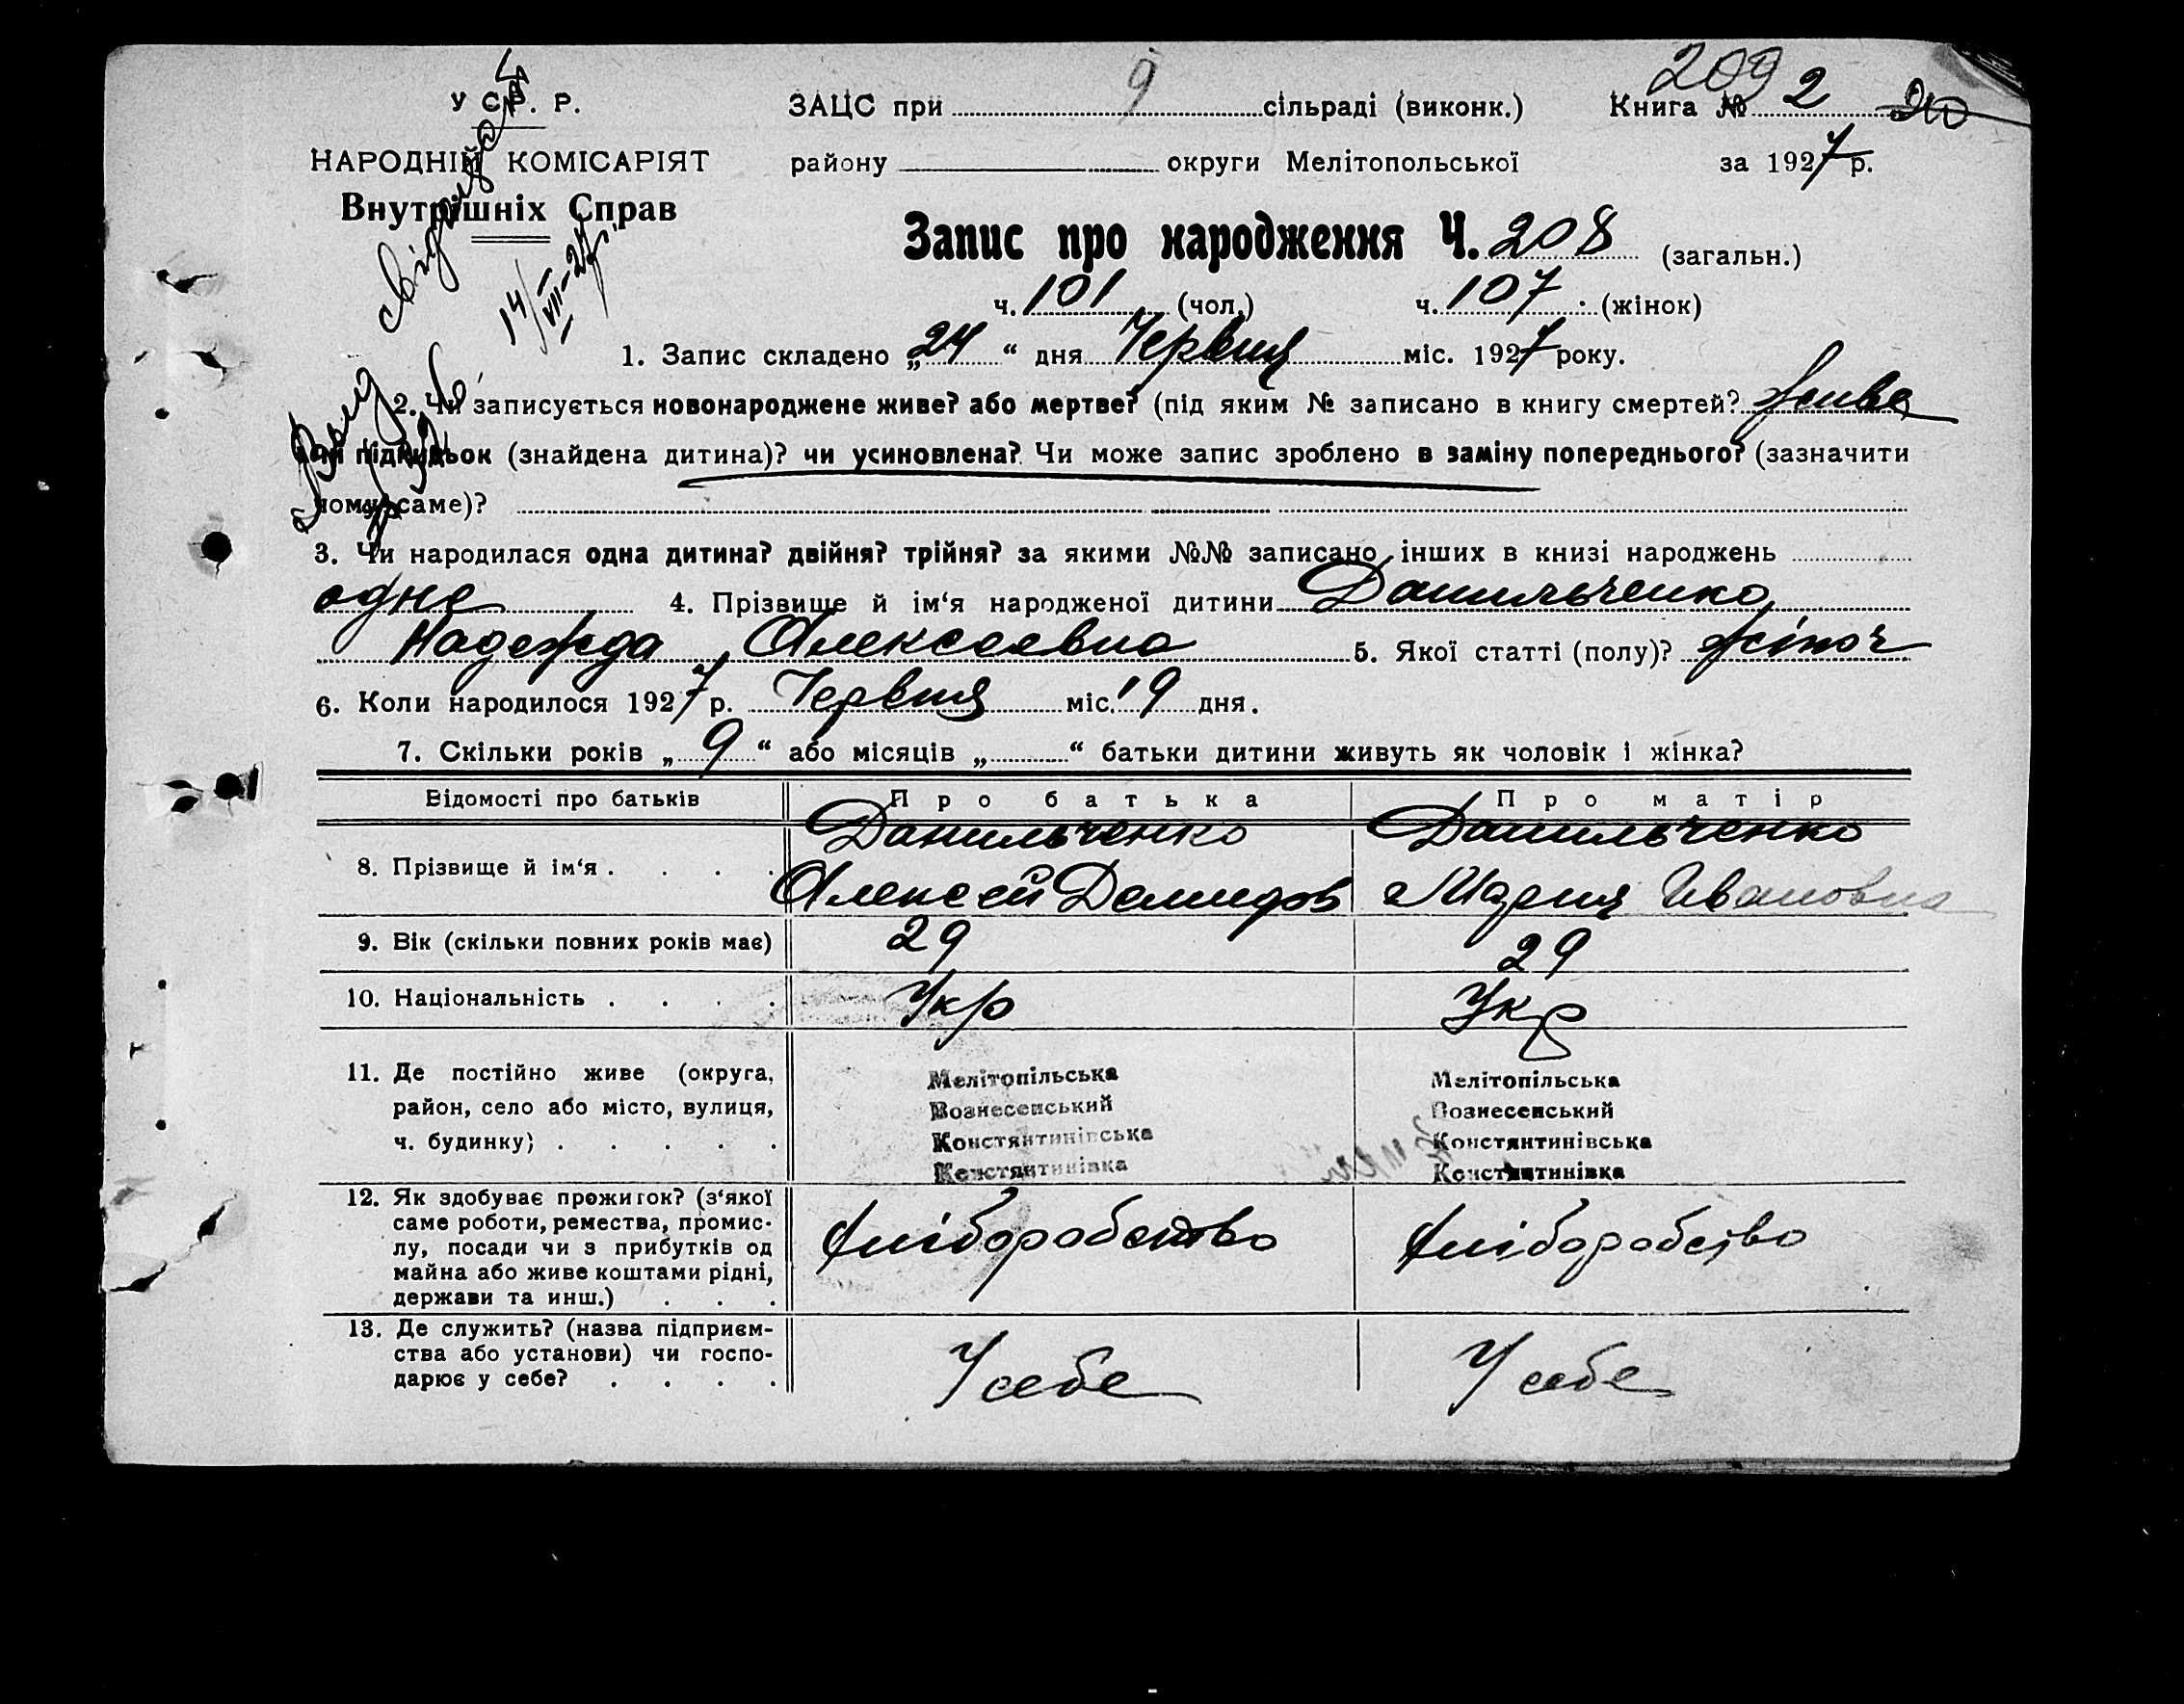 209
У С. Р. Р.
ЗАЦС при 9 сільраді (виконк.) Книга № 2 210
НАРОДНІЙ КОМІСАРІЯТ
району округи Мелітопольської за 1927 р.
Внутрішніх Справ
14/VIII-27р.
Запис про народження Ч. 208 (загальн.)
ч. 101 (чол.) ч. 107 (жінок)
1. Запис складено „24“ дня Червня міс. 1927 року.
2. Чи записується новонароджене живе? або мертве? (під яким № записано в книгу смертей? живе
чи підкидьок (знайдена дитина)? чи усиновлена? Чи може запис зроблено в заміну попереднього? (зазначити
чому саме)?
3. Чи народилася одна дитина? двійня? трійня? за якими №№ записано інших в книзі народжень
одне 4. Прізвище й ім‘я народженої дитини Данильченко
Надежда Алексеевна 5. Якої статті (полу)? жіноч
6. Коли народилося 1927 р. Червня міс. 19 дня.
7. Скільки років „9“ або місяців „ “ батьки дитини живуть як чоловік і жінка?
Відомості про батьків Про батька Про матір
8. Прізвище й ім‘я . . . . Данильченко Алексей Демидов Данильченко Мария Ивановна
9. Вік (скільки повних років має) 29 29
10. Національність . . . . Укр Укр
11. Де постійно живе (округа, Мелітопільська Мелітопільська
район, село або місто, вулиця, Вознесенський Вознесенський
ч. будинку) . . . . . Константинівська Константинівська
Константинівка Константинівка
12. Як здобуває прожиток? (з‘якої
саме роботи, ремества, промис-
лу, посади чи з прибутків од Хліборобство Хліборобство
майна або живе коштами рідні,
держави та инш.) . . .
13. Де служить? (назва підприєм-
ства або установи) чи госпо- У себе У себе
дарює у себе? . . . .